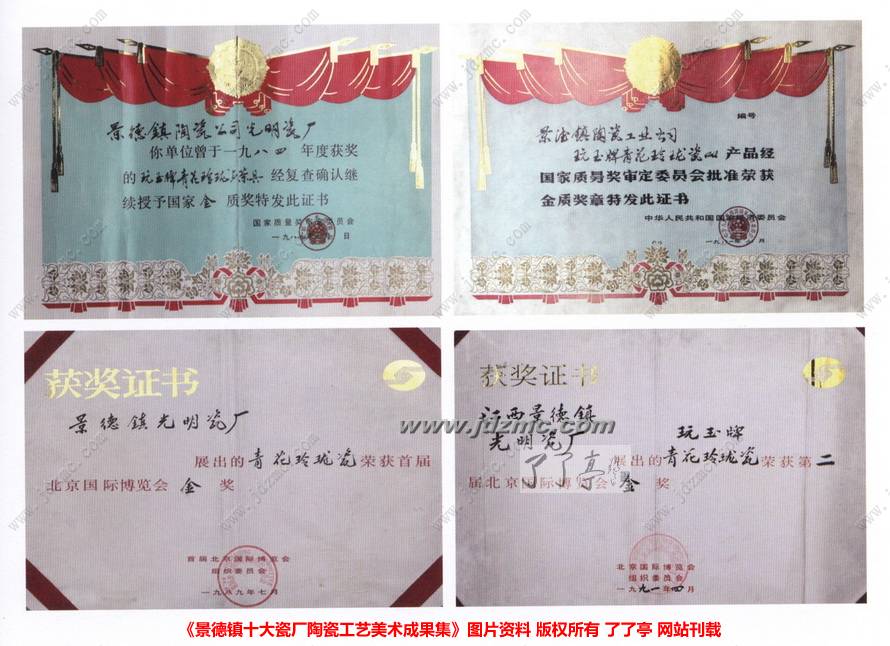 景德镇陶瓷公司光明瓷厂
你单位曾于一九八四 年度获奖
的玩玉牌青花玲珑 经复查确认继
续授予国家金 质奖特发此证书
国家质量奖 委员会
一九八 日
编号
景德镇陶瓷工业公司
玩玉牌青花玲珑瓷 产品经
国家质量奖审定委员会批准荣获
金质奖章特发此证书
中华人民共和国国家 委员会
一九八 月
获奖证书
景德镇光明瓷厂
展出的青花玲珑瓷荣获首届
北京国际博览会 金 奖
首届北京国际博览会
组织委员会
一九八九年七月
获奖证书
江西景德镇
光明瓷厂 玩玉牌
展出的青花玲珑瓷荣获第二
届北京国际博览会 金 奖
北京国际博览会
组织委员会
一九九一年四月
www.jdzmc.com
了了亭
《景德镇十大瓷厂陶瓷工艺美术成果集》图片资料 版权所有 了了亭 网站刊载